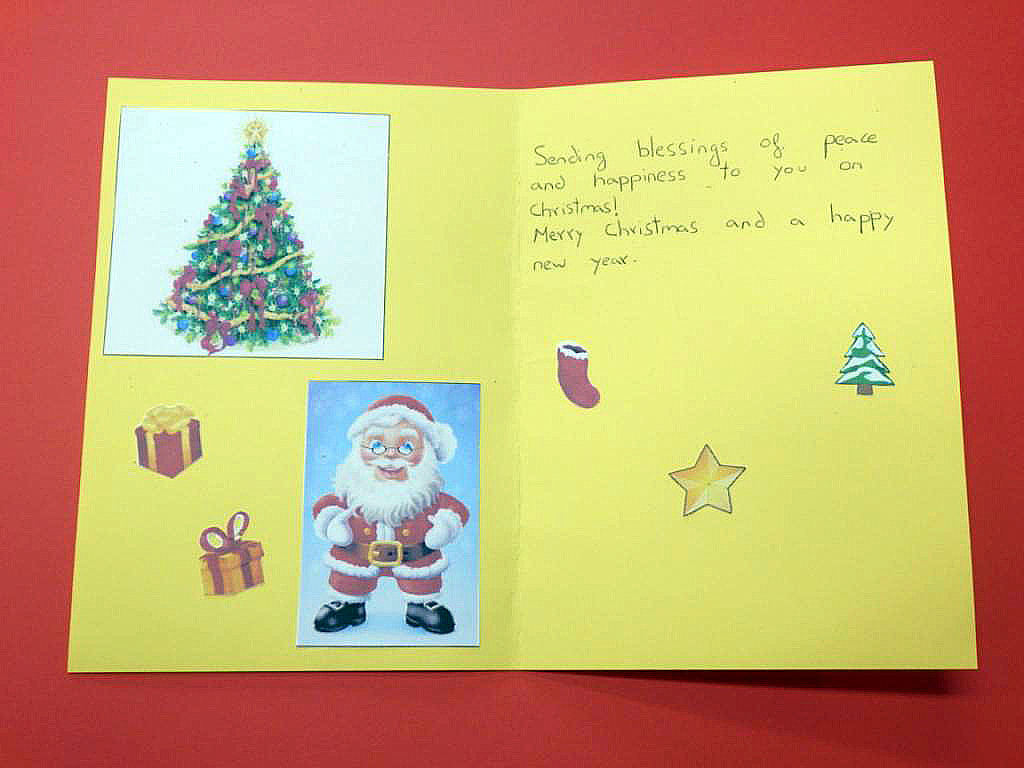 Sending blessings of peace
and happiness to you on
Christmas!
Merry Christmas and a happy
new year.